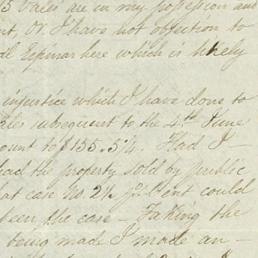 5 Bales are in my possession and
nt, Or I have not objection to
here which is likely
injustice which I have done to
ales subsequent to the 4th June
ount to $155.5¼. Had I
had the property sold by public
hat case No. 2½ pr Cent could
been the case – Taking the
being made I made an –